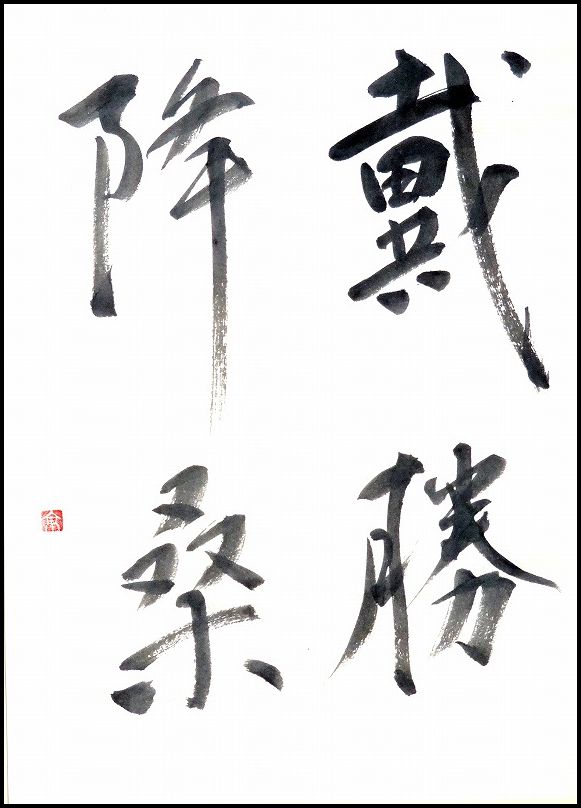 戴勝
降桑